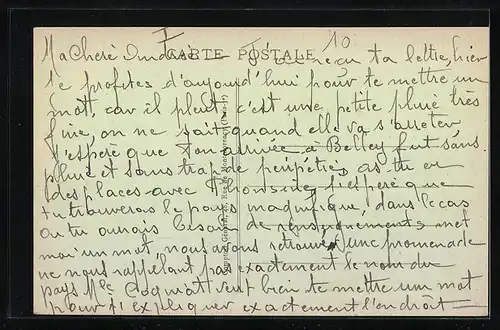 I 10
CARTE POSTALE
Ma Chère J'ai reçu ta lettre hier
je profites d'aujourd'hui pour te mettre un
mot, car il pleut, c'est une petite pluie très
fine, on ne sait quand elle va s'arreter
J'espère que ton arrivée à Belley fut sans
pluie et sans trop de péripéties as-tu eu
des places avec j'espère que
tu trouveras le pays magnifique, dans le cas
ou tu aurais besoin de renseignements met
moi un mot, nous avons retrouvé une promenade
ne nous rappelant pas exactement le nom du
pays Mlle veut bien te mettre un mot
pour t'expliquer exactement l'endroit